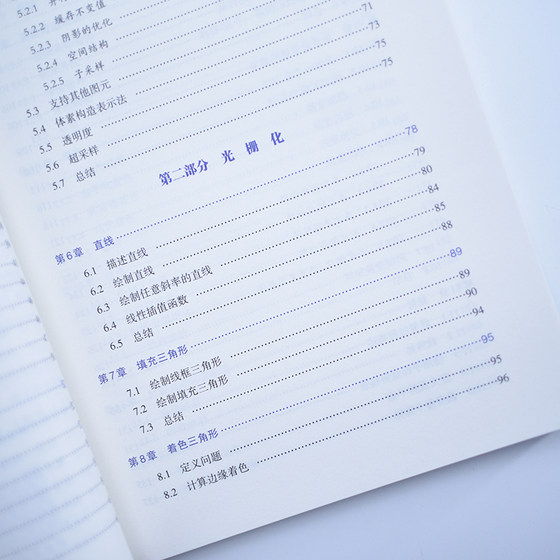 5.2.2 缓存不变值
5.2.3 阴影的优化
5.2.4 空间结构
5.2.5 子采样
5.3 支持其他图元
5.4 体素构造表示法 71
5.5 透明度 73
5.6 超采样 75
5.7 总结 75
第二部分 光 栅 化
第6章 直线 78
6.1 描述直线 79
6.2 绘制直线 80
6.3 绘制任意斜率的直线 84
6.4 线性插值函数 85
6.5 总结 88
第7章 填充三角形 89
7.1 绘制线框三角形 89
7.2 绘制填充三角形 90
7.3 总结 94
第8章 着色三角形 95
8.1 定义问题 95
8.2 计算边缘着色 96